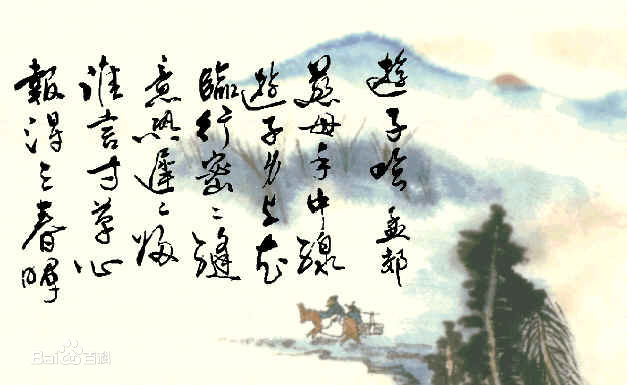 遊子吟 孟郊
慈母手中線
遊子身上衣
臨行密〻縫
意恐遲〻歸
誰言寸草心
報得三春暉
Baidu百科